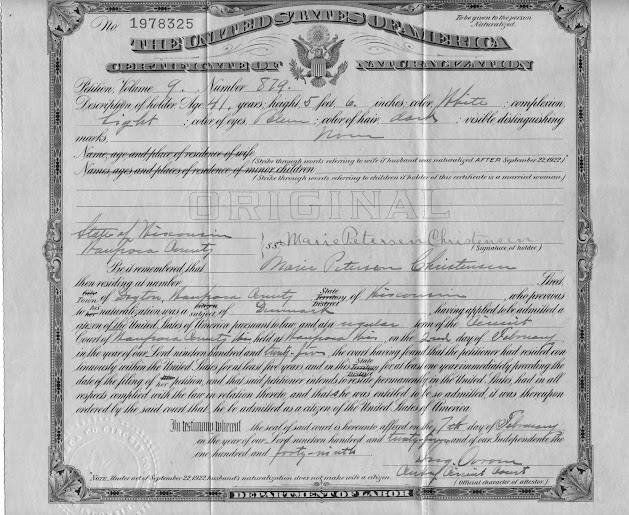 No. 1978325
To be given to the person Naturalized.
THE UNITED STATES OF AMERICA
CERTIFICATE OF NATURALIZATION
Petition, Volume 9 Number 879.
Description of holder: Age 41, years; height, 5 feet, 6 inches; color, White; complexion,
Light; color of eyes, Blue; color of hair, dark; visible distinguishing
marks, None
Name, age and place of residence of wife
(Strike through words referring to wife if husband was naturalized AFTER September 22, 1922.)
Names, ages and places of residence of minor children
(Strike through words referring to children if holder of this certificate is a married woman)
ORIGINAL
State of Wisconsin
Waupaca County
} S.S. Marie Petersen Christensen
(Signature of holder)
Be it remembered, that Marie Petersen Christensen
then residing at number Street,
Town of Dayton, Waupaca County State Territory District of Wisconsin, who previous
to his her naturalization was a subject of Denmark, having applied to be admitted a
citizen of the United States of America pursuant to law, and at a regular term of the Circuit
Court of Waupaca County held at Waupaca Wis, on the 2nd day of February
in the year of our Lord nineteen hundred and twenty-five, the court having found that the petitioner had resided con-
tinuously within the United States for at least five years and in this State Territory District for at least one year immediately preceding the
date of the filing of his her petition, and that said petitioner intends to reside permanently in the United States, had in all
respects complied with the law in relation thereto, and that she was entitled to be so admitted, it was thereupon
ordered by the said court that she be admitted as a citizen of the United States of America.
In testimony whereof the seal of said court is hereunto affixed on the 7th day of February
in the year of our Lord nineteen hundred and twenty-five and of our Independence the
one hundred and forty-ninth
Circuit Court
NOTE. Under act of September 22, 1922, husband's naturalization does not make wife a citizen.
(Official character of attestor)
DEPARTMENT OF LABOR